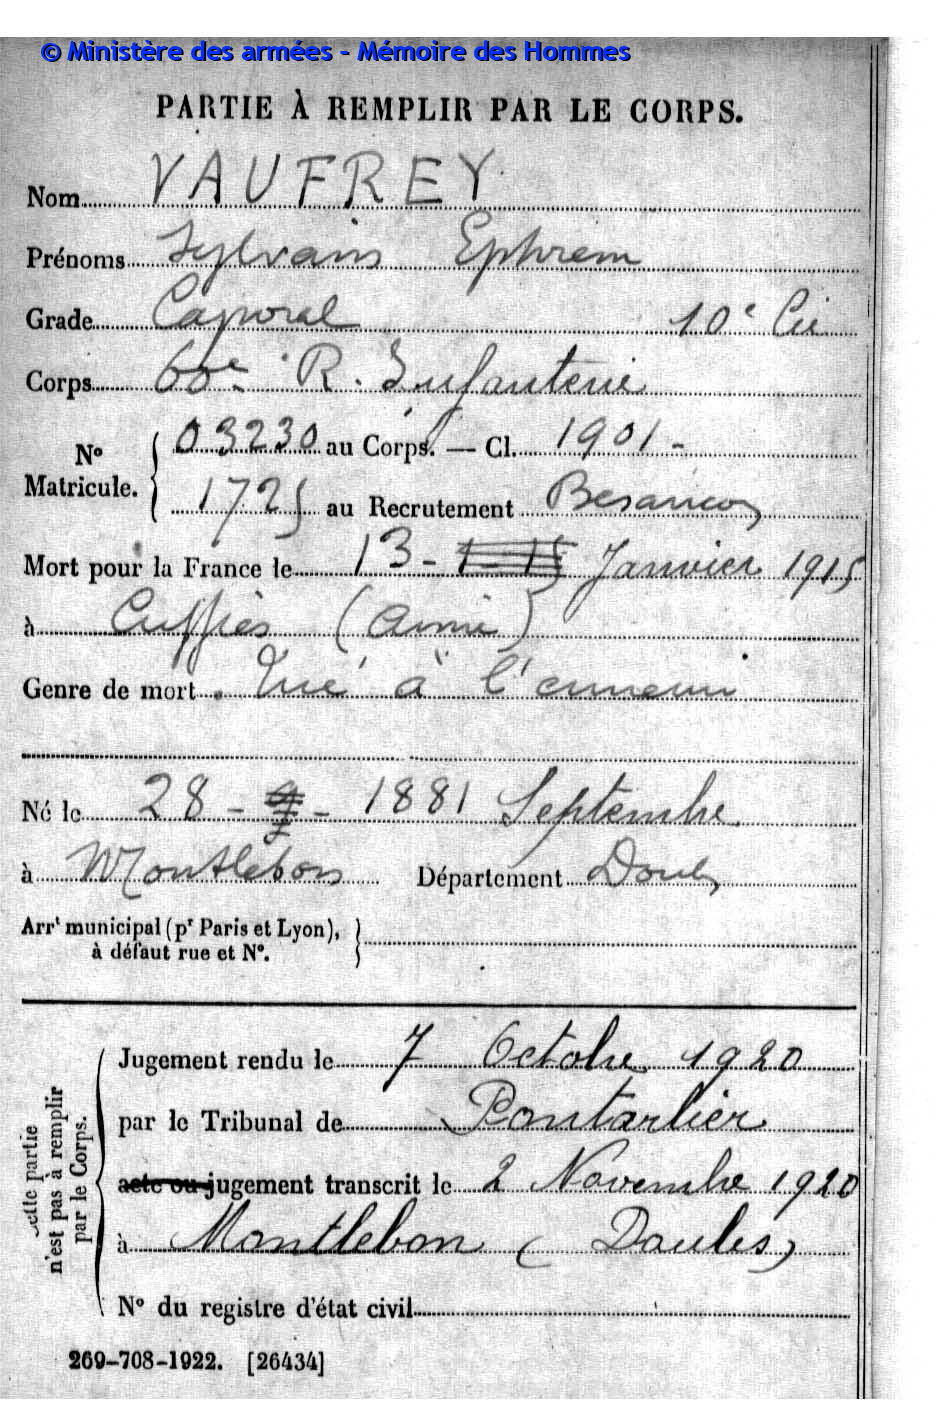 © Ministère des armées - Mémoire des Hommes
PARTIE À REMPLIR PAR LE CORPS.
Nom VAUFREY
Prénoms Sylvain Ephrem
Grade Caporal 10e Cie
Corps 60e R. Infanterie
No Matricule. { 03230 au Corps. — Cl. 1901 -
1725 au Recrutement Besançon
Mort pour la France le 13 - 1 - 15 Janvier 1915
à Cuffies (Aisne)
Genre de mort Tué à l'ennemi
Né le 28 - 9 - 1881 Septembre
à Montlebon Département Doubs
Arrt municipal (pr Paris et Lyon),
à défaut rue et No.
Cette partie
n'est pas à remplir
par le Corps.
Jugement rendu le 7 Octobre 1920
par le Tribunal de Pontarlier
acte ou jugement transcrit le 2 Novembre 1920
à Montlebon (Doubs)
No du registre d'état civil
269-708-1922. [26434]